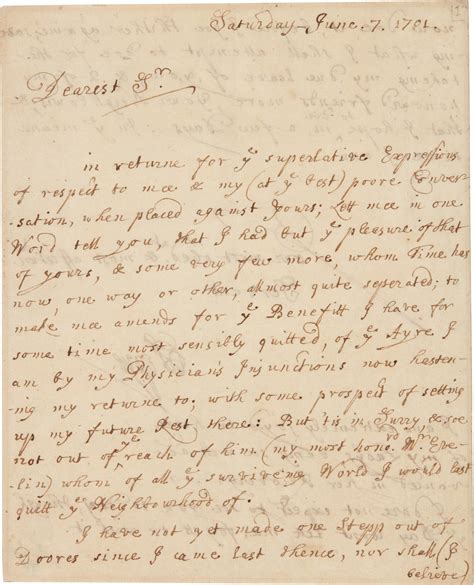 Saturday. June. 7. 1701.
Dearest Sr.
in returne for ye superlative Expressions
of respect to mee & my (at ye best) poore Conver-
sation, when placed against yours; Lett mee in one
Word tell you, that I had but ye pleasure of that
of yours, & some very few more, whom Time has
now, one way or other, almost quite seperated; to
make mee amends for ye Benefitt I have for
some time most sensibly quitted, of ye Ayre I
am by my Physician's Injunctions now hasten-
ing my returne to; with some prospect of setting
up my future Rest there: But 'tis in Surry & soe
not out of ye reach of him (my most honord. Mr. Eve-
lin) whom of all ye surviveing World I would last
quitt ye Neighbourhood of.
I have not yet made one Stepp out of
Doores since I came last thence, nor shall (I
believe)